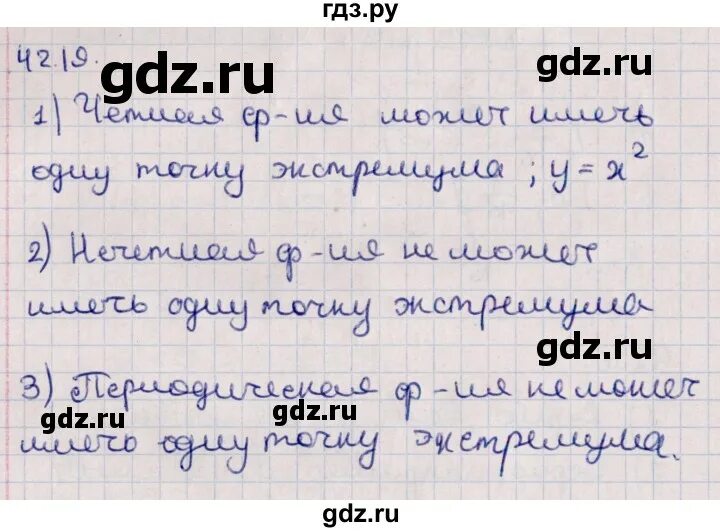 гдз.ру
42.19.
gdz.ru
gdz.ru
1) Четная ф-ия может иметь
одну точку экстремума ; y = x²
2) Нечетная ф-ия не может
gdz.ru
иметь одну точку экстремума
gdz.ru
3) Периодическая ф-ия не может
gdz.ru
gdz.ru
иметь одну точку экстремума.
gdz.ru